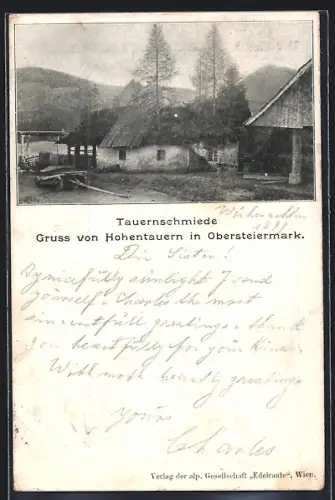 Tauernschmiede
Gruss von Hohentauern in Obersteiermark.
Weihnachten
1899
Dir Sister!
I send
yourself & Charles the most
greetings & thank
you heartfully for your
With most heardly greetings
yours
Charles
Verlag der alp. Gesellschaft „Edelraute“, Wien.